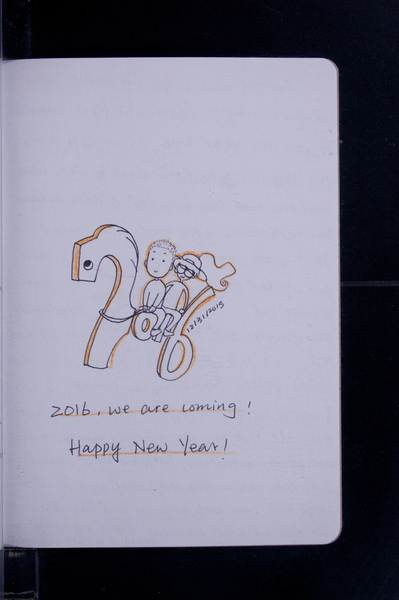 12/31/2015
2016, we are coming!
Happy New Year!